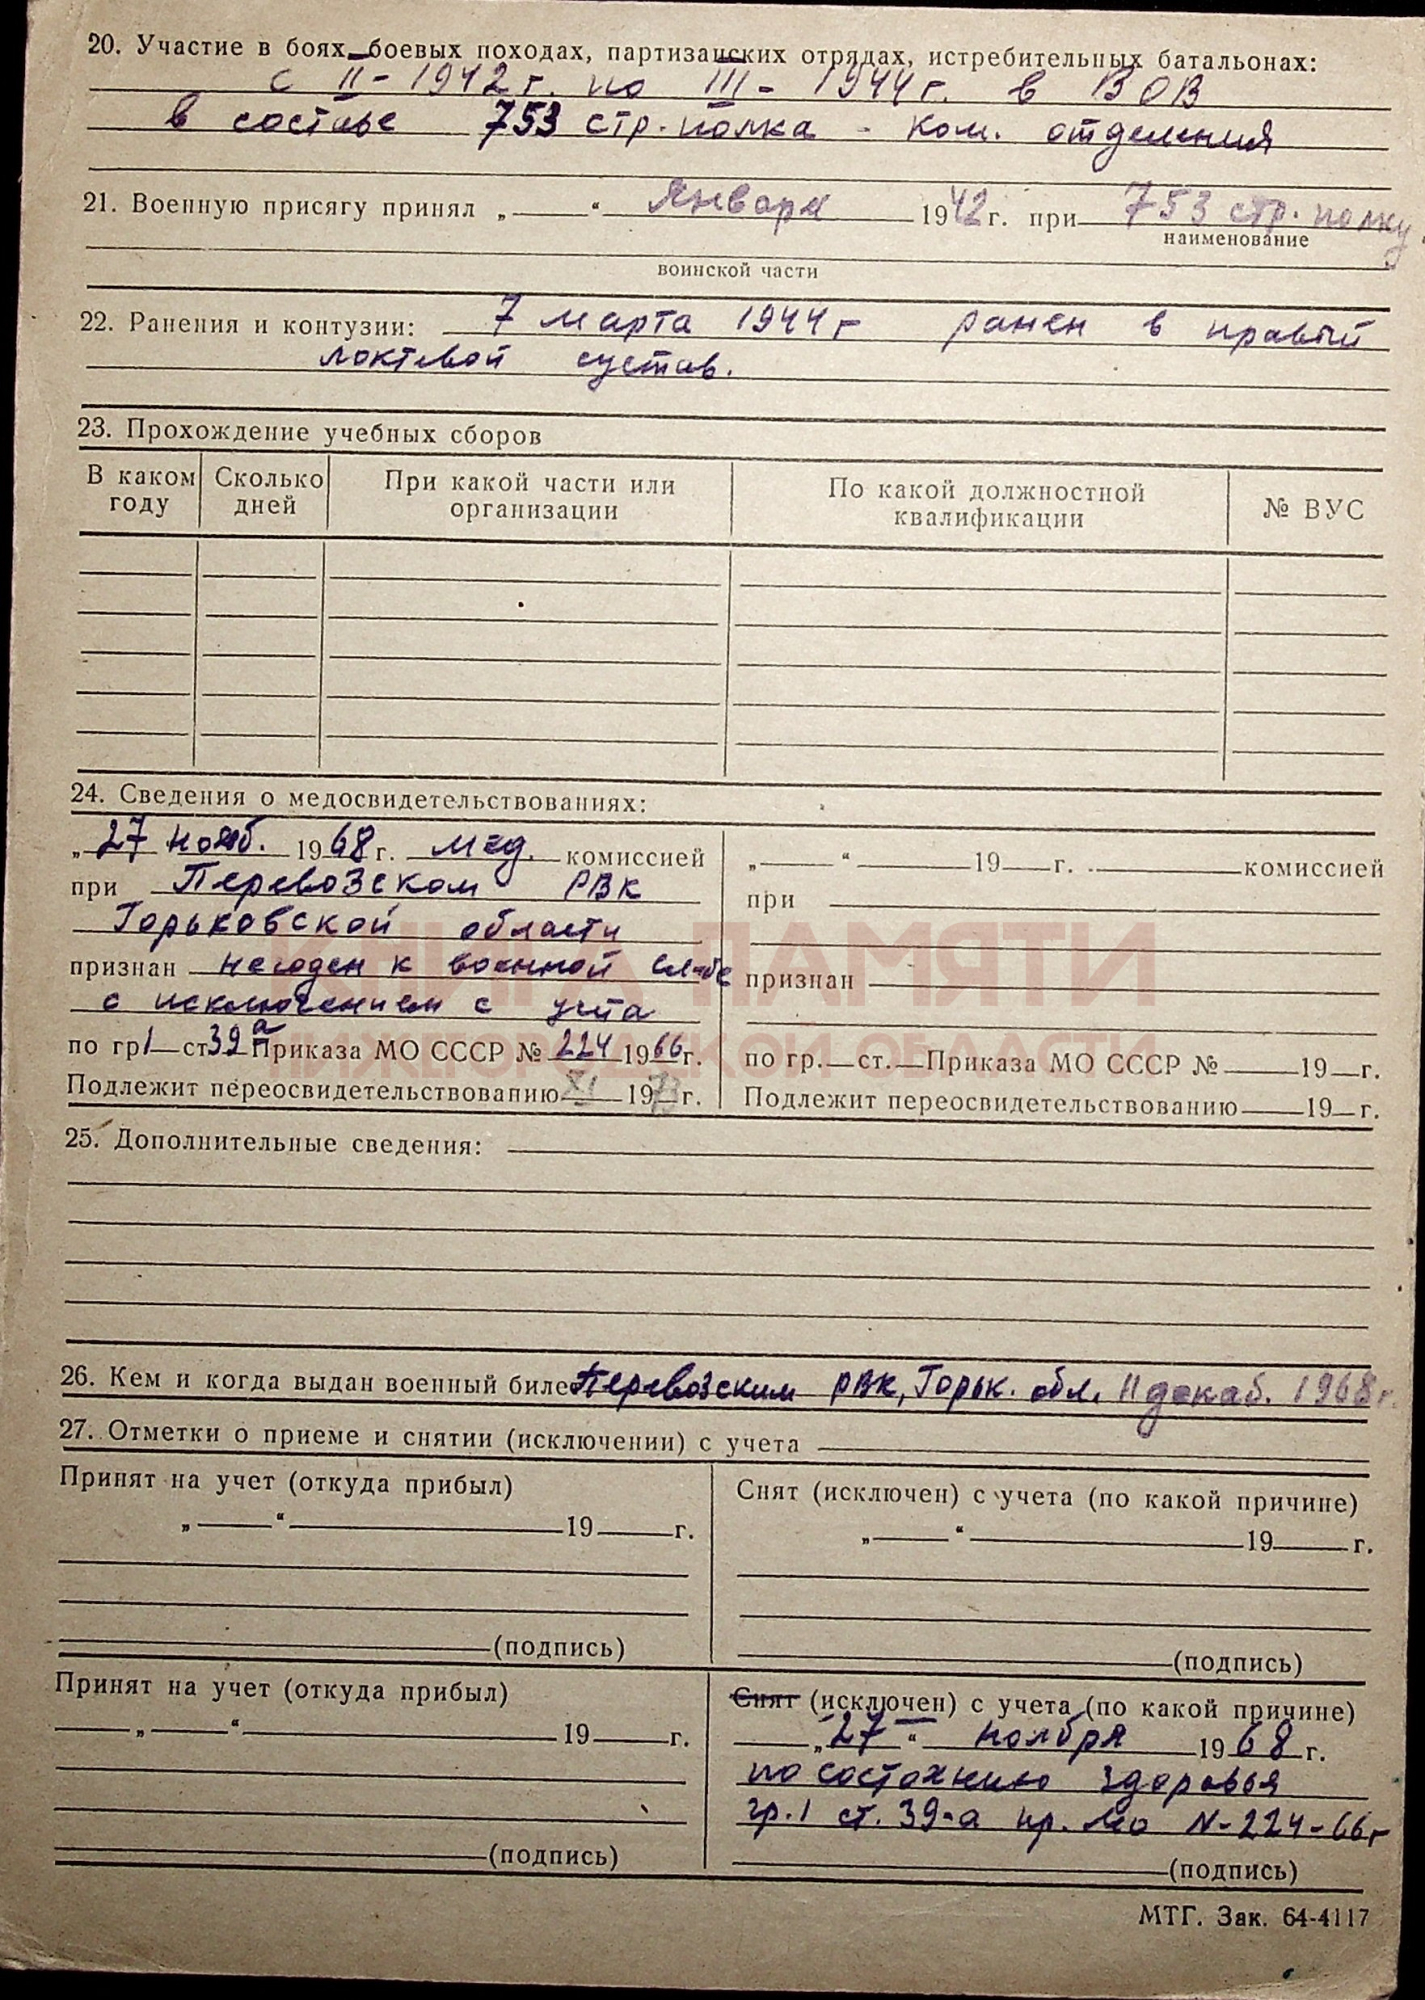 20. Участие в боях, боевых походах, партизанских отрядах, истребительных батальонах:
с II - 1942 г. по III - 1944 г. в ВОВ
в составе 753 стр. полка - ком. отделения
21. Военную присягу принял „ “ Января 1942 г. при 753 стр. полку
наименование
воинской части
22. Ранения и контузии: 7 марта 1944 г ранен в правый
локтевой сустав.
23. Прохождение учебных сборов
В каком году
Сколько дней
При какой части или организации
По какой должностной квалификации
№ ВУС
24. Сведения о медосвидетельствованиях:
„27 нояб. 1968 г. мед. комиссией
при Перевозском РВК
Горьковской области
признан негоден к военной сл-бе
с исключением с учета
по гр 1 ст 39 а Приказа МО СССР № 224 1966 г.
Подлежит переосвидетельствованию XI 1973 г.
„ “ 19 г. комиссией
при
признан
по гр. ст. Приказа МО СССР № 19 г.
Подлежит переосвидетельствованию 19 г.
КНИГА ПАМЯТИ
НИЖЕГОРОДСКОЙ ОБЛАСТИ
25. Дополнительные сведения:
26. Кем и когда выдан военный билет Перевозским РВК, Горьк. обл. 11 декаб. 1968 г.
27. Отметки о приеме и снятии (исключении) с учета
Принят на учет (откуда прибыл)
„ “ 19 г.
(подпись)
Снят (исключен) с учета (по какой причине)
„ “ 19 г.
(подпись)
Принят на учет (откуда прибыл)
„ “ 19 г.
(подпись)
Снят (исключен) с учета (по какой причине)
„27“ ноября 1968 г.
по состоянию здоровья
гр. 1 ст. 39-а пр. МО N-224-66 г
(подпись)
МТГ. Зак. 64-4117